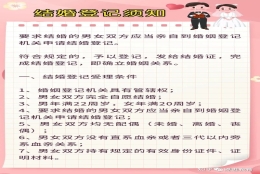 结婚登记须知
要求结婚的男女双方应当亲自到婚姻登记
机关申请结婚登记。
符合规定的，予以登记，发给结婚证，完
成结婚登记，即确立婚姻关系。
一、结婚登记受理条件
1、婚姻登记机关具有管辖权；
2、男女双方完全自愿结婚；
3、男年满22周岁，女年满20周岁；
4、要求结婚的男女双方应当亲自到婚姻登
记机关申请结婚登记；
5、男女双方均无配偶（未婚、离婚、丧
偶）；
6、男女双方没有直系血亲或者三代以内旁
系血亲关系；
7、男女双方持有规定的有效身份证件、证
明材料。